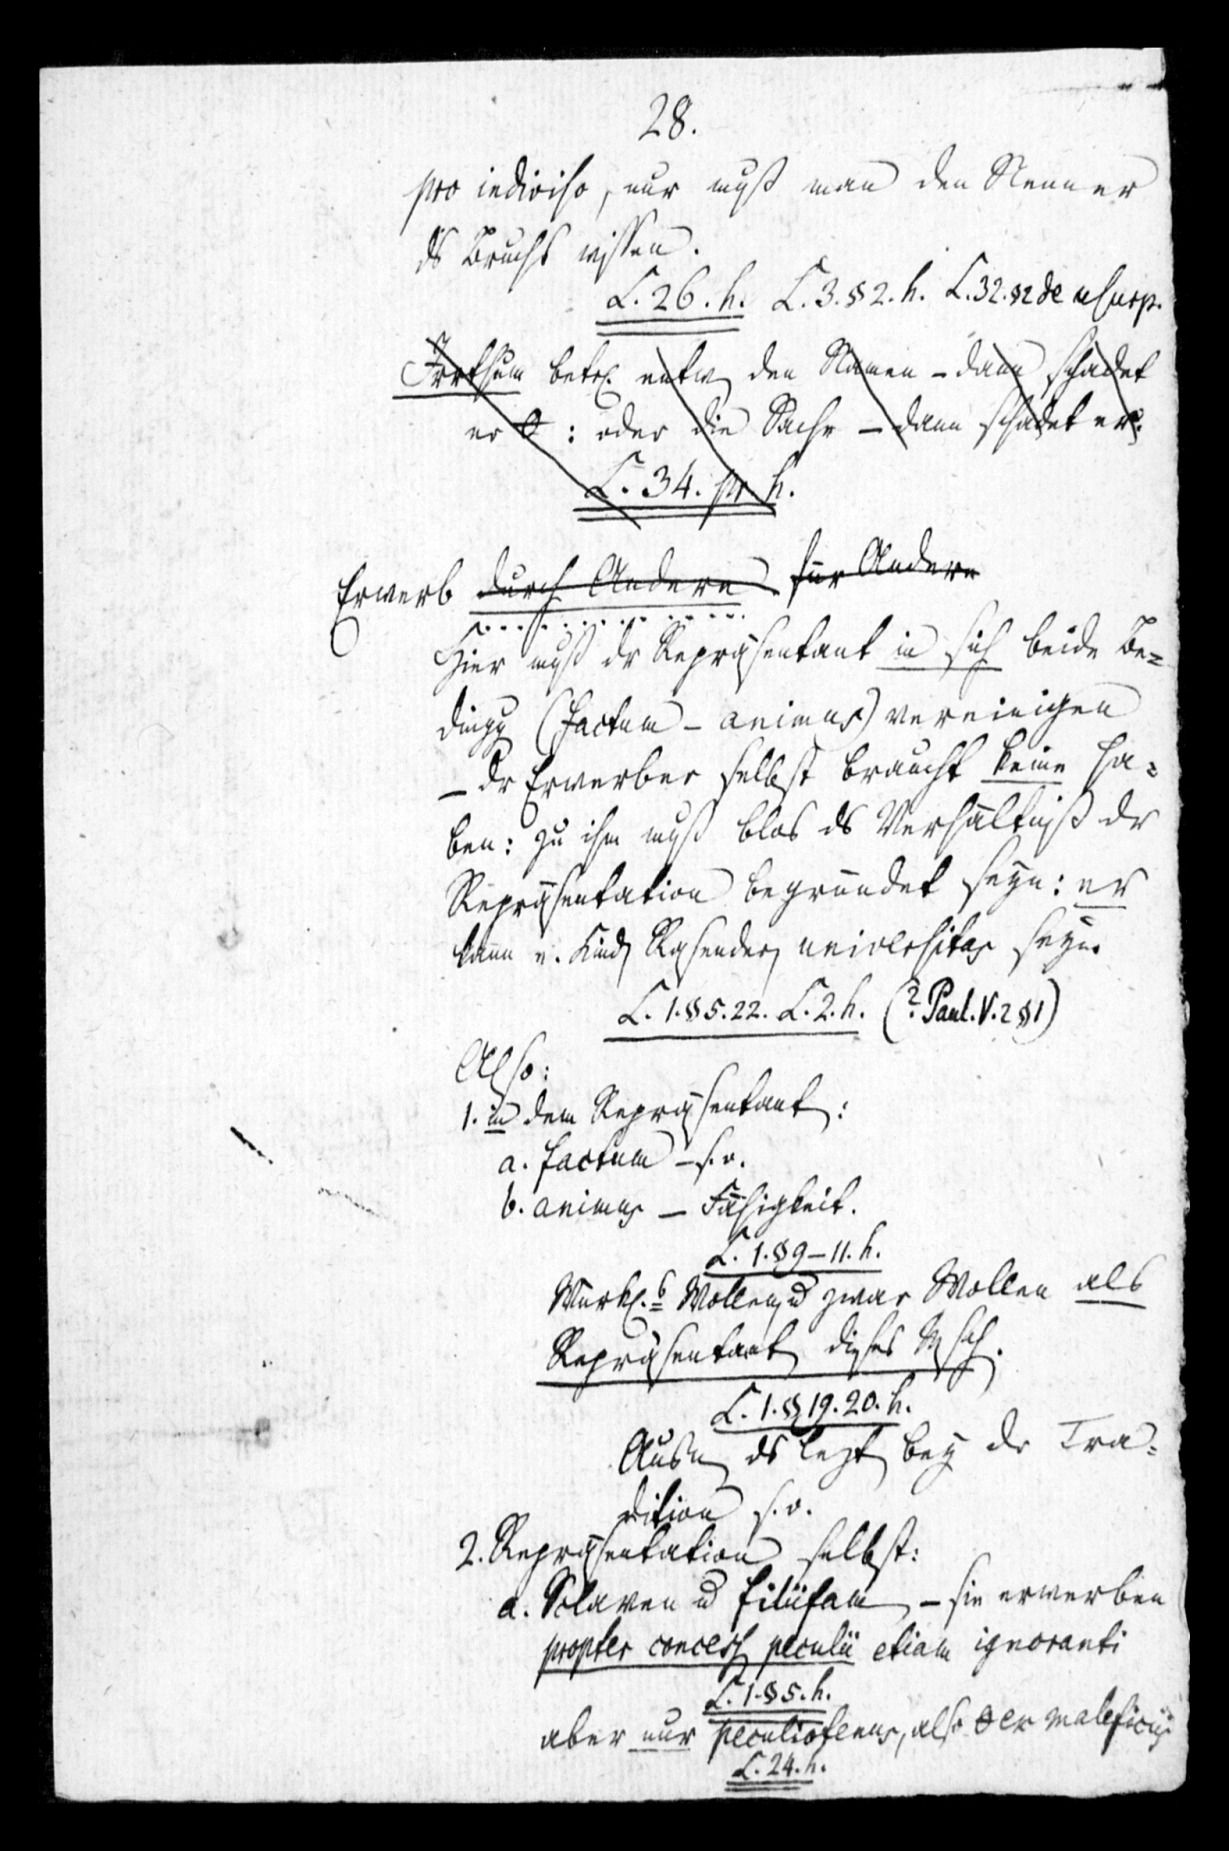 28.
pro indiviso, nur muß man den Nenner
ds Bruchs wissen.
L. 26. h. L. 3. § 2. h. L. 32. § 2 de usurp.
Irrthum betr. entw den Namen – dann schadet
er : oder die Sache – dann schadet er.
L. 34. pr h.
Erwerb durch Andere für Andere
Hier muß dr Repräsentant in sich beide Be=
dingg (factum – animus) vereinigen
– dr Erwerber selbst braucht keine ha=
ben: zu ihm muß blos ds Verhältniß dr
Repräsentation begründet seyn: er
kann e. Kind, Rasender, universitas seyn.
L. 1. § 5. 22. L. 2. h. (? Paul. V. 2 § 1)
Also:
1. in dem Repräsentant:
a. factum – s. o.
b. animus – Fähigkeit.
L. 1. § 9–11. h.
Wollen, u zwar Wollen als
Repräsentant dieses
L. 1. § 19. 20. h.
Ausn ds lezt bey dr Tra=
dition s. o.
2. Repräsentation selbst:
a. Sclaven u filiifam – sie erwerben
propter concess peculii etiam ignoranti
L. 1. § 5. h.
aber nur peculiotenus, also ex maleficiis
L. 24. h.